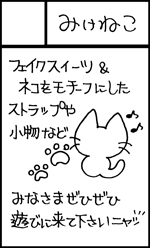 みけねこ
フェイクスイーツ &
ネコをモチーフにした
ストラップや
小物など
みなさまぜひぜひ
遊びに来て下さいニャ!!